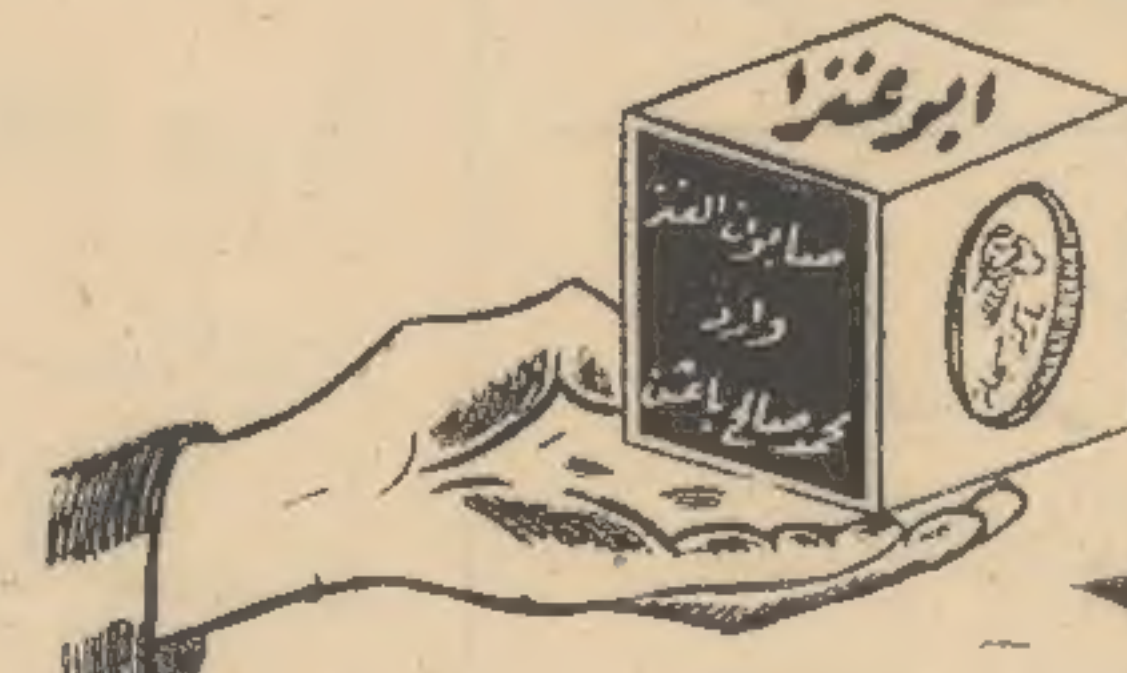 ابو عنزا
صابون العنز
وارد
محمد صالح باعشن